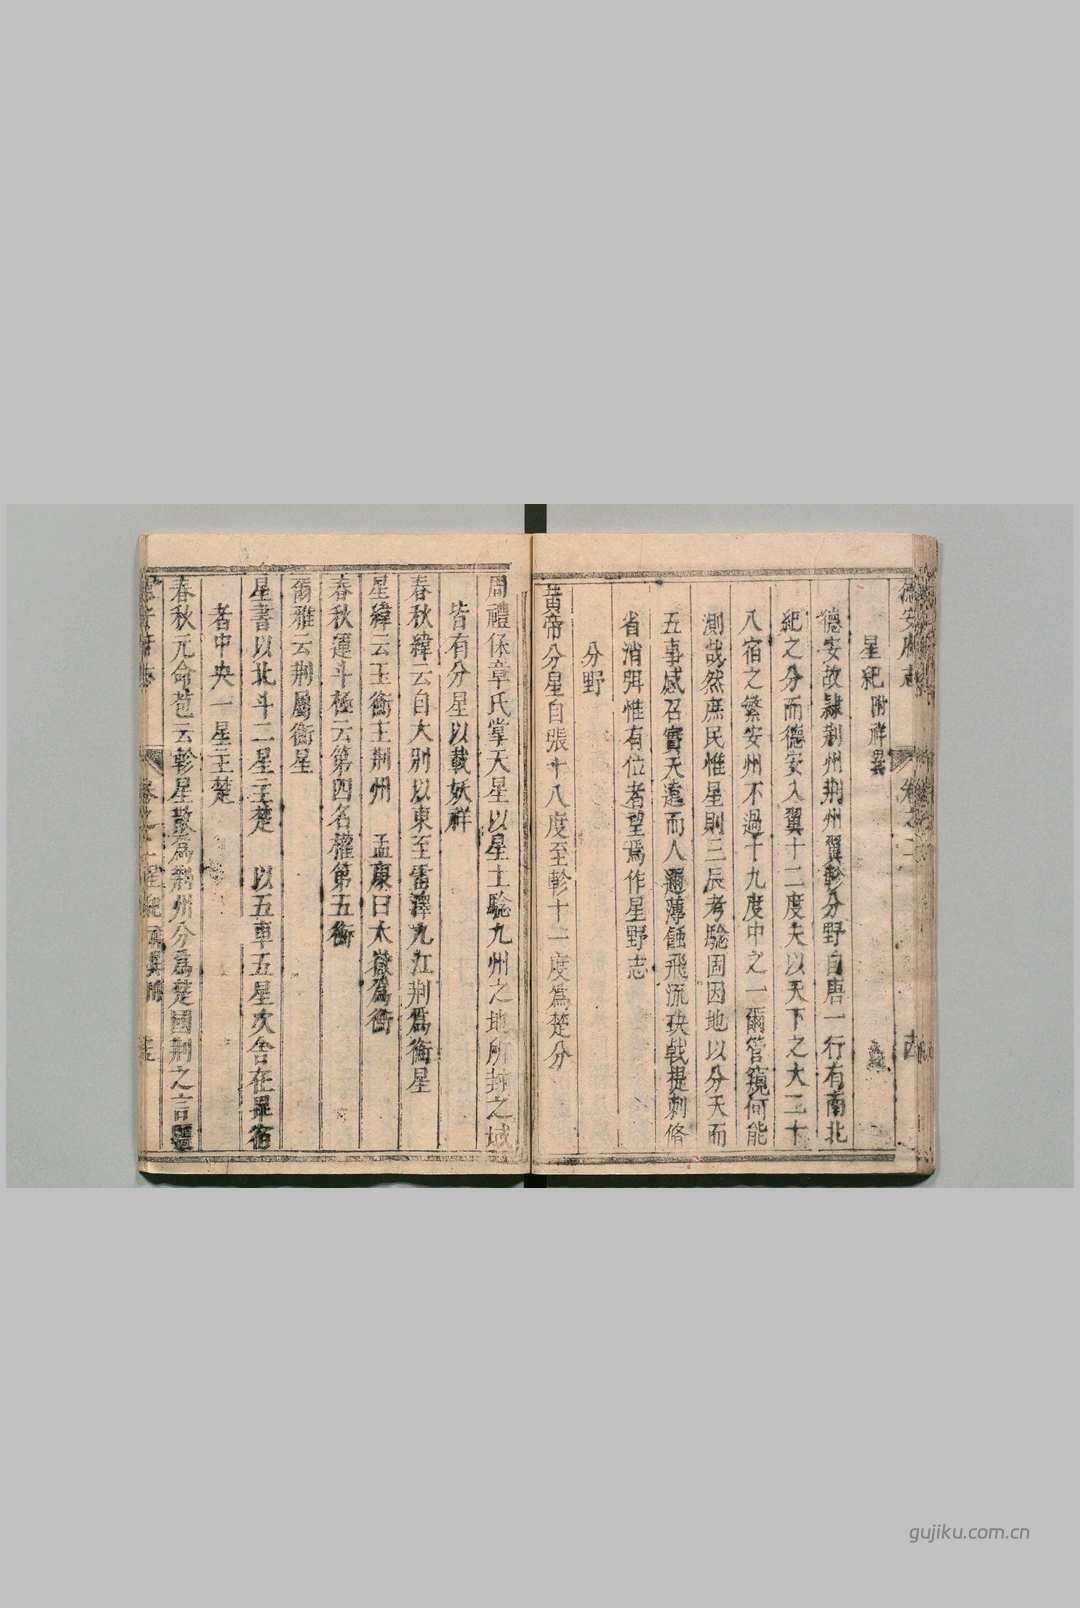 德安府志 卷之二
星紀 附祥異
德安故隸荆州荆州翼軫分野自唐一行有南北
紀之分而德安入翼十二度夫以天下之大二十
八宿之繁安州不過十九度中之一爾管窺何能
測哉然庶民惟星則三辰考驗固因地以分天而
五事感召實天遠而人邇薄蝕飛流玦戟提刺脩
省消弭惟有位者望爲作星野志
分野
黄帝分星自張十八度至軫十一度爲楚分
周禮保章氏掌天星以星土驗九州之地所封之域
皆有分星以載妖祥
春秋緯云自大别以東至雷澤九江荆爲衡星
星緯云玉衡主荆州 孟康曰太嶽爲衡
春秋運斗極云第四名權第五衡
爾雅云荆屬衡星
星書以北斗二星主楚 以五車五星次舍在畢宿
者中央一星主楚
春秋元命苞云軫星散爲荆州分爲楚國荆之言彊
gujiku.com.cn